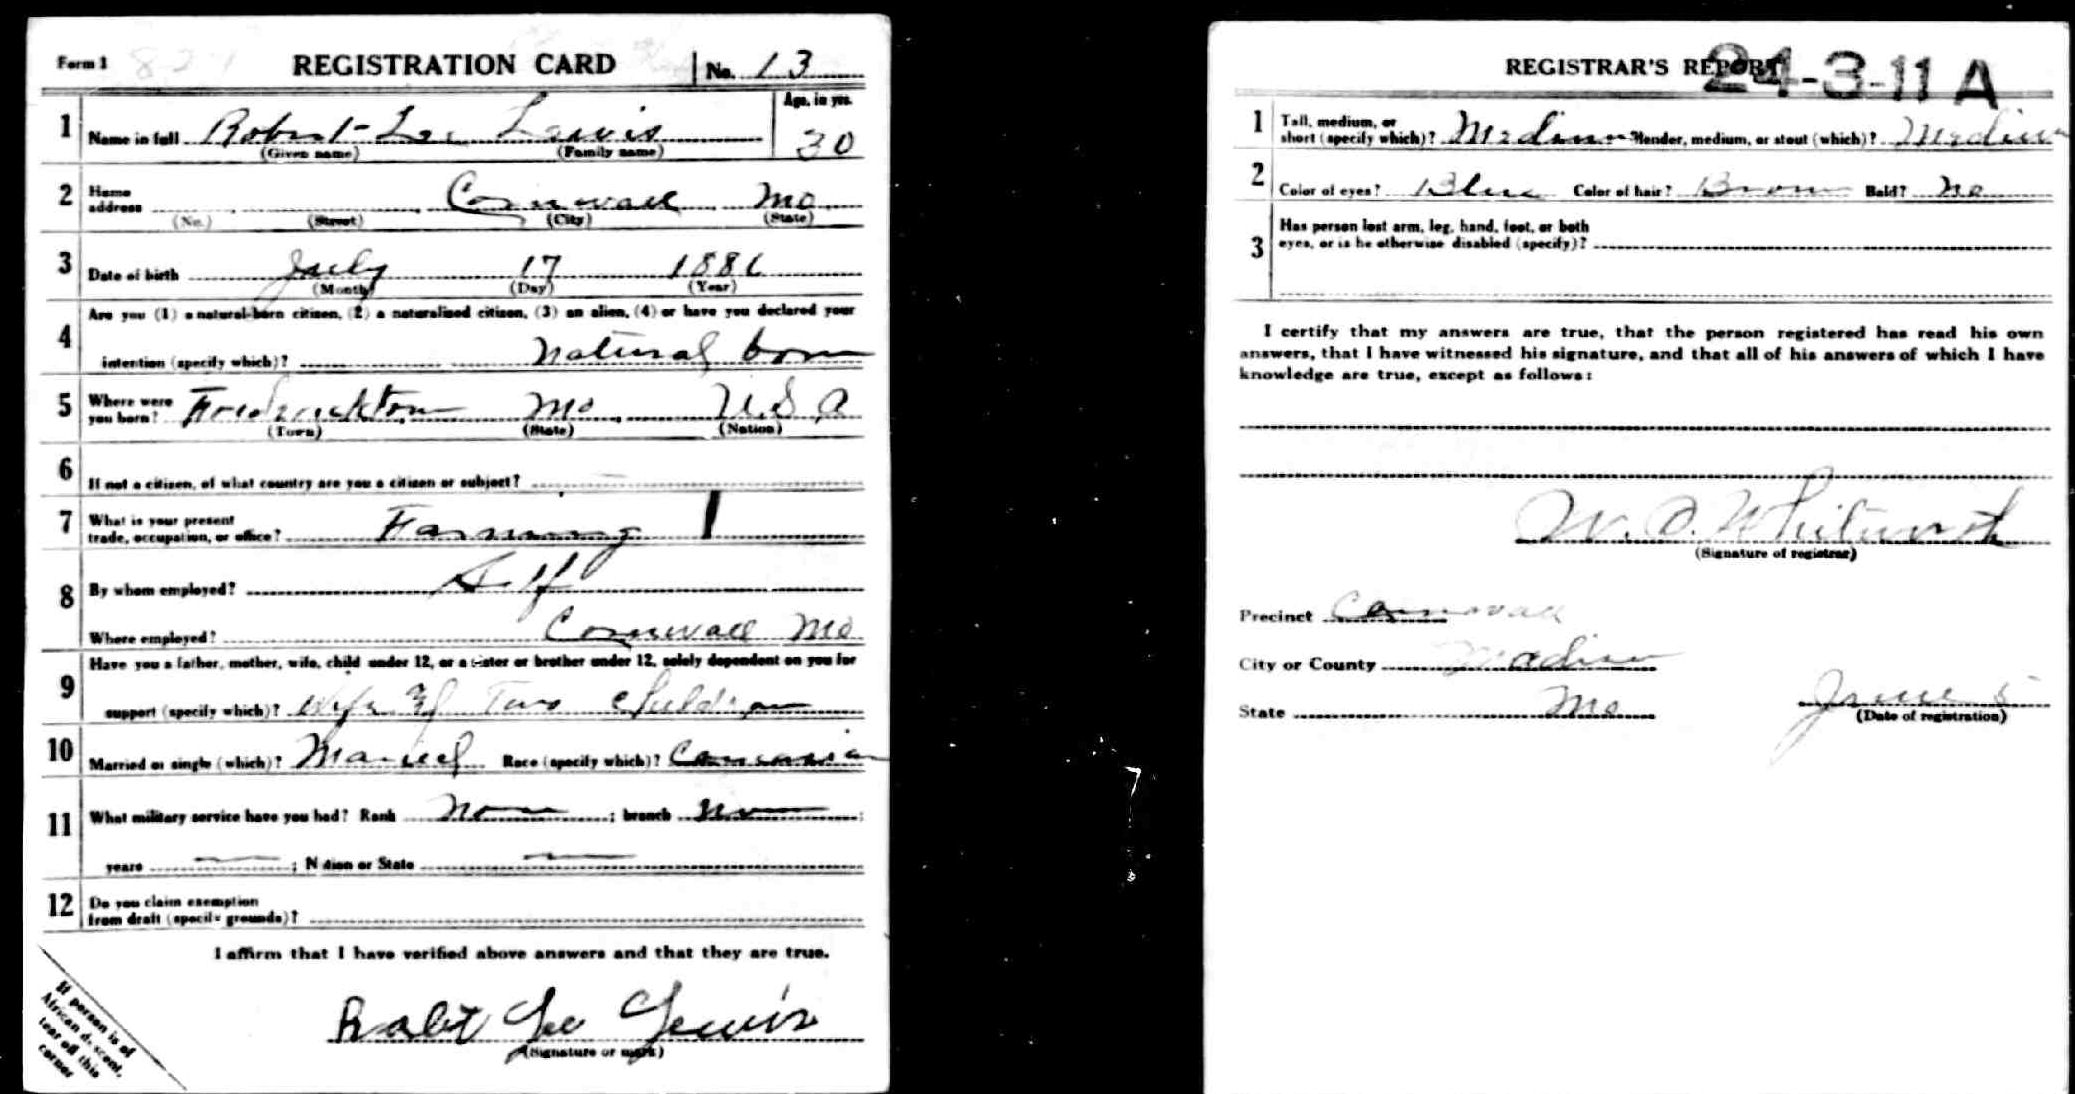 Form 1 REGISTRATION CARD No. 13
1 Name in full Robert Lee Lewis Age, in yrs. 30
(Given name) (Family name)
2 Home address Cornwall Mo
(No.) (Street) (City) (State)
3 Date of birth July 17 1886
(Month) (Day) (Year)
4 Are you (1) a natural-born citizen, (2) a naturalized citizen, (3) an alien, (4) or have you declared your
intention (specify which)? Natural born
5 Where were you born? Fredricktown Mo U.S.A
(Town) (State) (Nation)
6 If not a citizen, of what country are you a citizen or subject?
7 What is your present
trade, occupation, or office? Farming
8 By whom employed? Self
Where employed? Cornwall Mo
9 Have you a father, mother, wife, child under 12, or a sister or brother under 12, solely dependent on you for
support (specify which)? Wife & Two children
10 Married or single (which)? Married Race (specify which)? Caucasian
11 What military service have you had? Rank None ; branch None ;
years ; Nation or State
12 Do you claim exemption
from draft (specify grounds)?
I affirm that I have verified above answers and that they are true.
Robert Lee Lewis
(Signature or mark)
If person is of
African descent,
tear off this
corner
REGISTRAR'S REPORT 24-3-11 A
1 Tall, medium, or
short (specify which)? Medium Slender, medium, or stout (which)? Medium
2 Color of eyes? Blue Color of hair? Brown Bald? No
3 Has person lost arm, leg, hand, foot, or both
eyes, or is he otherwise disabled (specify)?
I certify that my answers are true, that the person registered has read his own
answers, that I have witnessed his signature, and that all of his answers of which I have
knowledge are true, except as follows:
W. O. Whitworth
(Signature of registrar)
Precinct Cornwall
City or County Madison
State Mo June 5
(Date of registration)